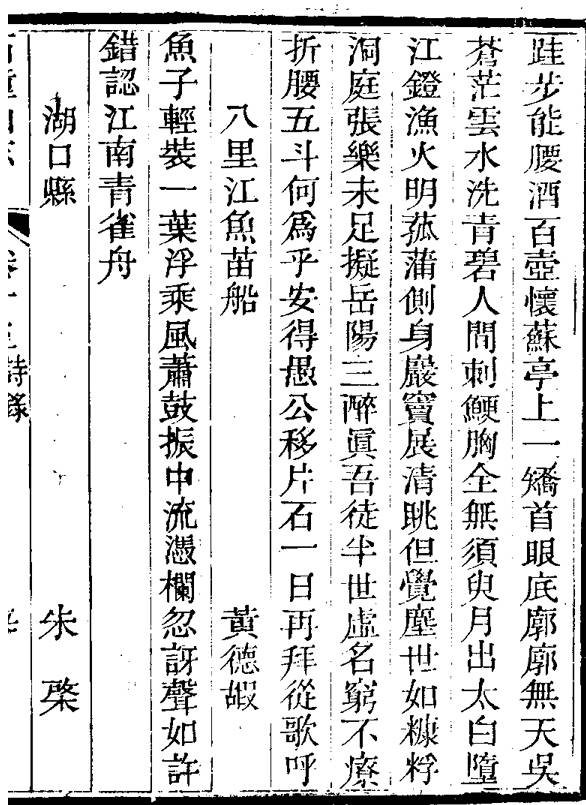 跬步能腰酒百壺懷蘇亭上一矯首眼底廓廓無天吳
蒼茫雲水洗青碧人間刺鯁胸全無須臾月出太白墮
江鐙漁火明菰蒲側身巖竇展清眺但覺塵世如糠粰
洞庭張樂未足擬岳陽三醉眞吾徒半世虛名窮不療
折腰五斗何爲乎安得愚公移片石一日再拜從歌呼
八里江魚苗船 黃德嘏
魚子輕裝一葉浮乘風蕭鼓振中流憑欄忽訝聲如許
錯認江南青雀舟
湖口縣 朱棨
詩錄